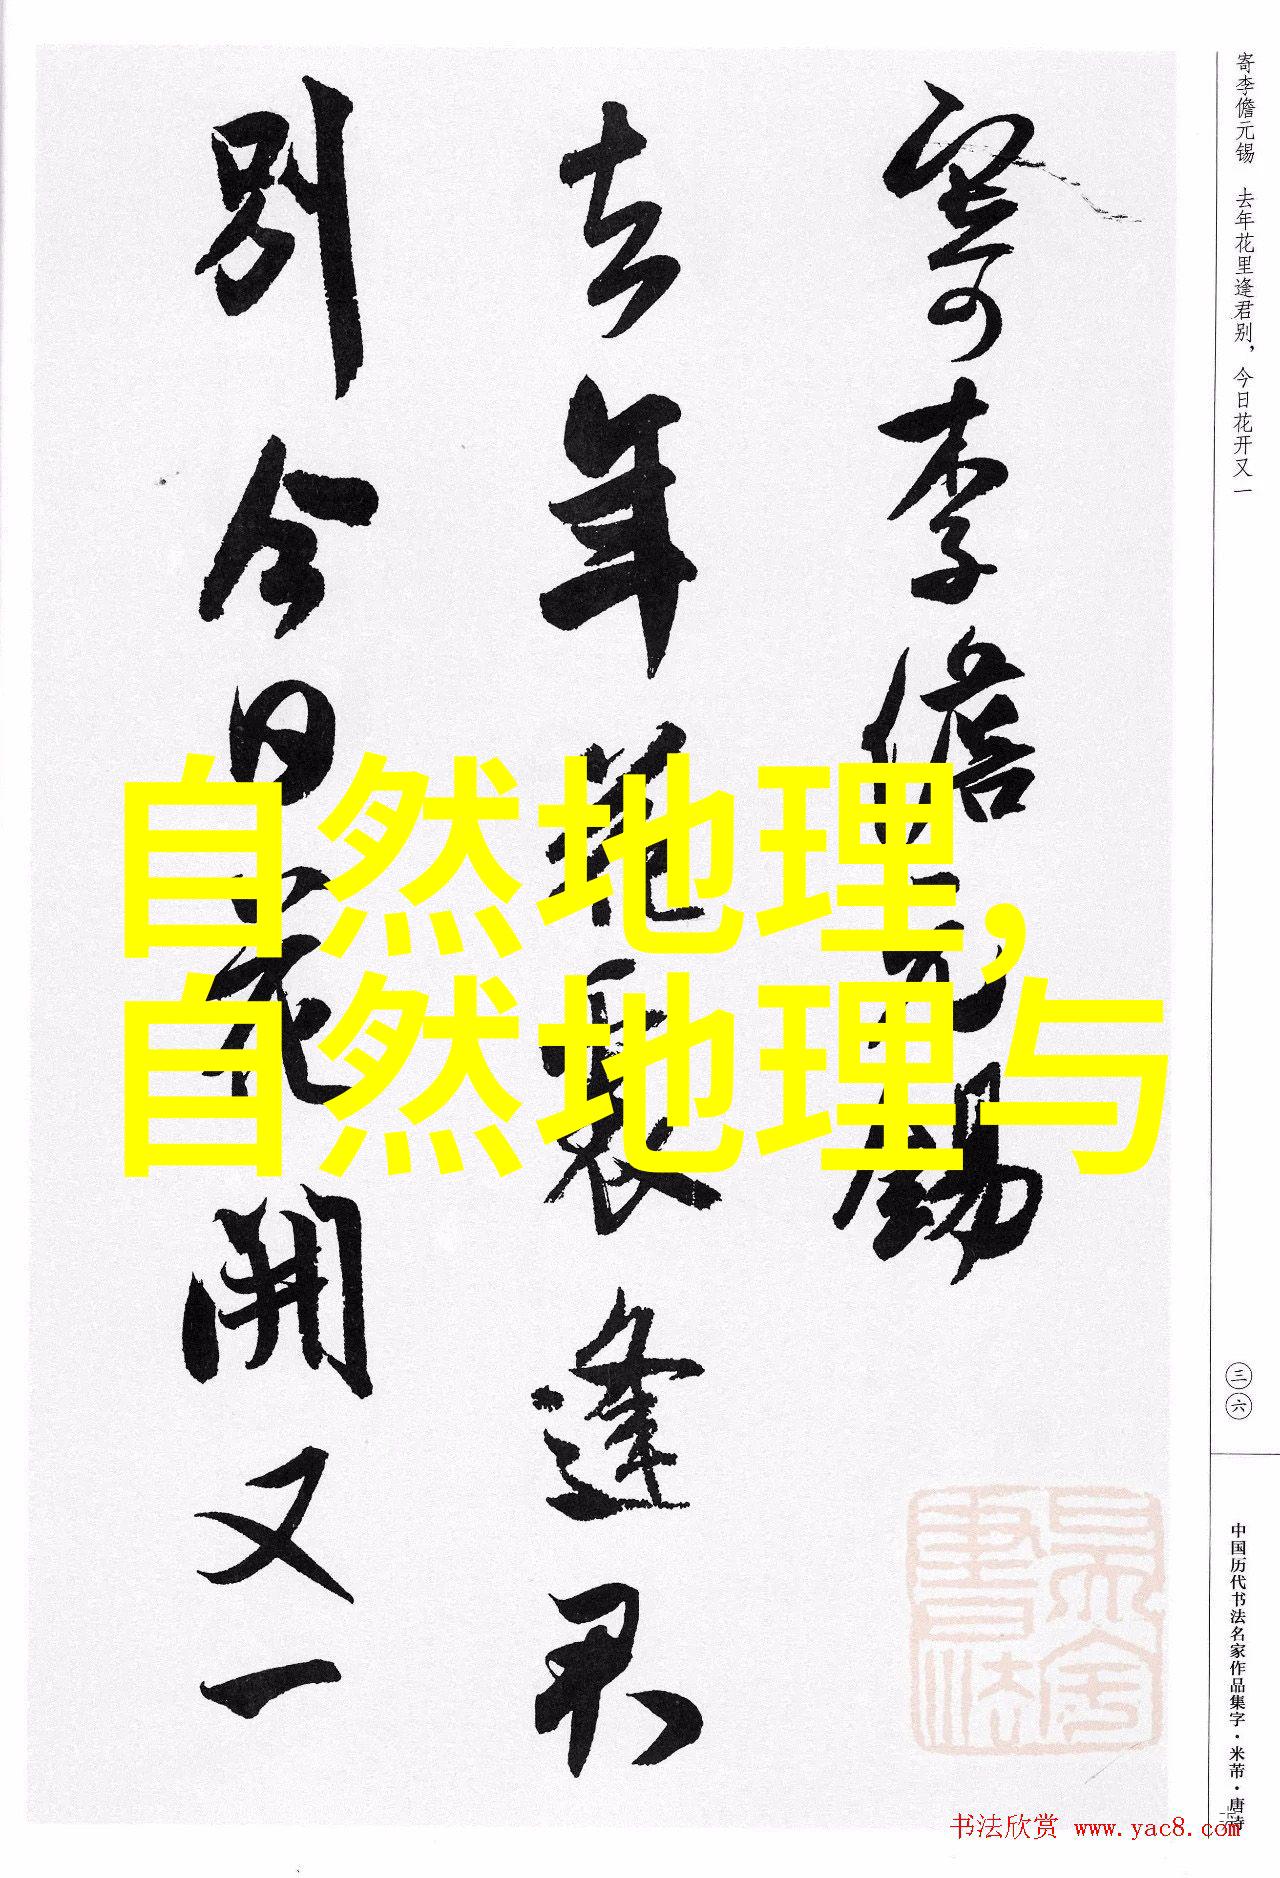 寄李儋元锡
去年花里逢君
别今日花開又一
自然地理,
自然地理与
寄李儋元锡　去年花里逢君别，今日花开又一
三六
中国历代书法名家作品集字·米芾·唐诗
书法欣赏 www.yac8.com